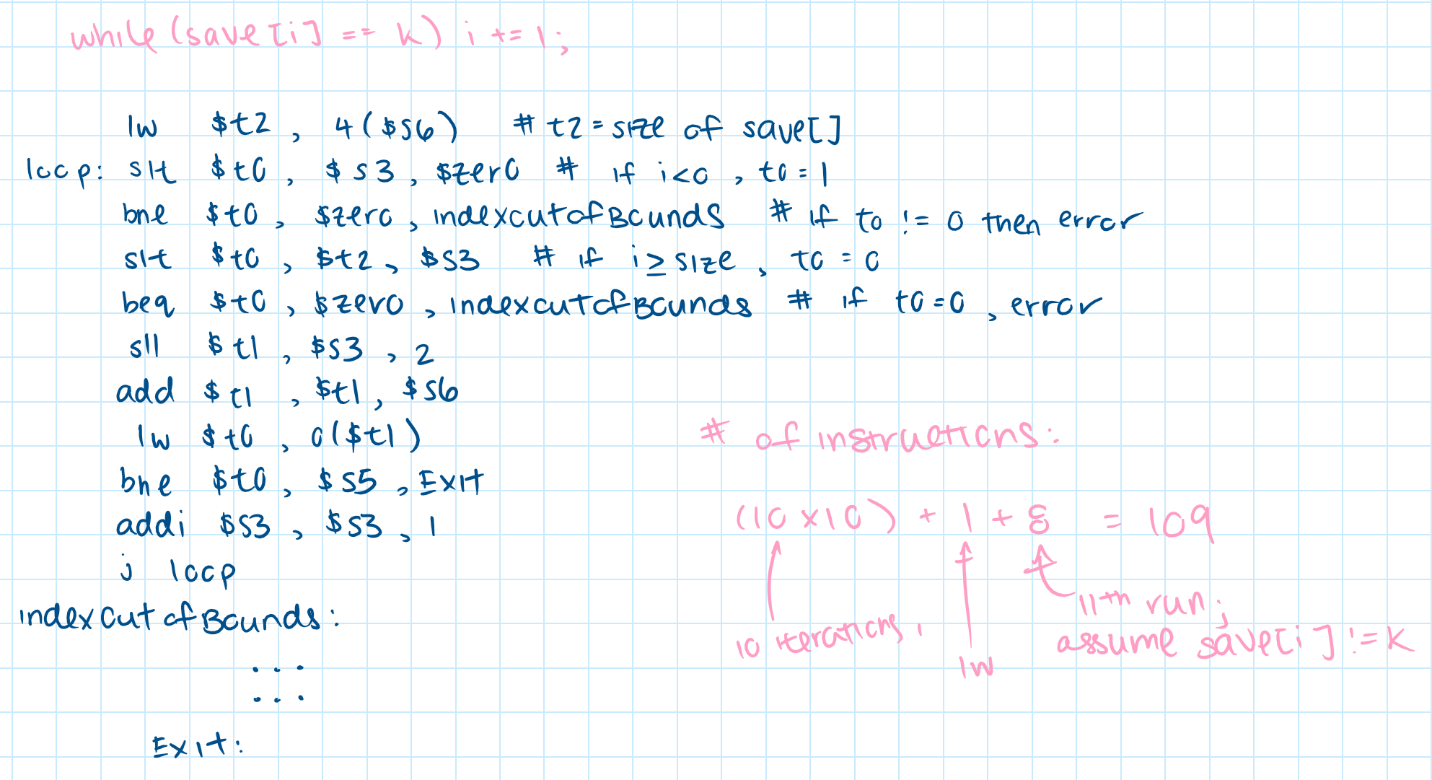 while (save [i] == k) i += 1;
lw $t2, 4($s6) # t2 = size of save[]
loop: slt $t0, $s3, $zero # if i<0, t0 = 1
bne $t0, $zero, indexoutofBounds # if t0 != 0 then error
slt $t0, $t2, $s3 # if i ≥ size, t0 = 0
beq $t0, $zero, indexoutofBounds # if t0=0, error
sll $t1, $s3, 2
add $t1, $t1, $s6
lw $t0, 0($t1)
bne $t0, $s5, Exit
addi $s3, $s3, 1
j loop
indexoutofBounds:
...
...
Exit:
# of instructions:
(10 x 10) + 1 + 8 = 109
10 iterations,
lw
11th run;
assume save[i] != k